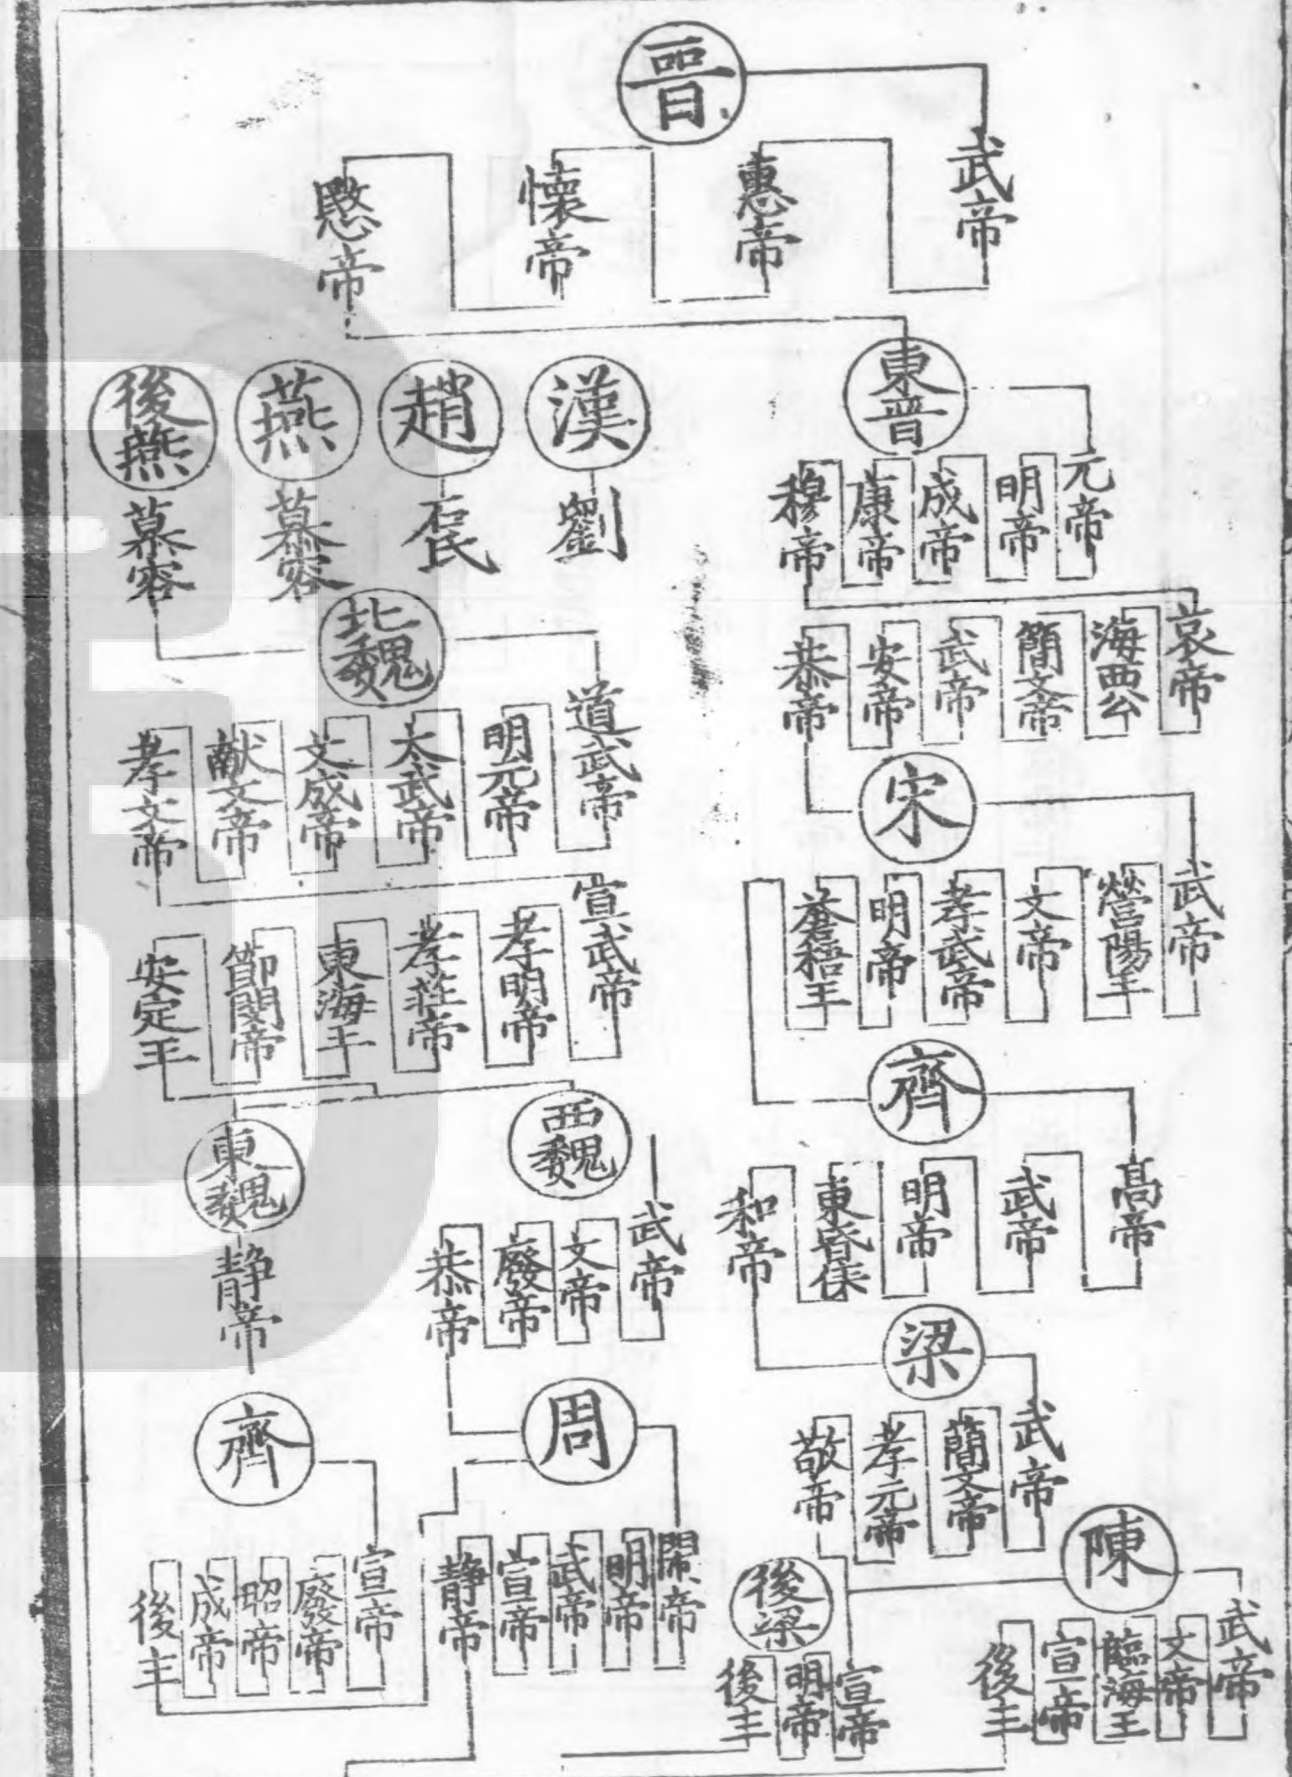 晉
武帝
惠帝
懷帝
愍帝
東晉
元帝
明帝
成帝
康帝
穆帝
哀帝
海西公
簡文帝
武帝
安帝
恭帝
宋
武帝
營陽王
文帝
孝武帝
明帝
蒼梧王
齊
高帝
武帝
明帝
東昏侯
和帝
梁
武帝
簡文帝
孝元帝
敬帝
陳
武帝
文帝
臨海王
宣帝
後主
後梁
宣帝
明帝
後主
漢
劉
趙
石氏
燕
慕容
後燕
慕容
北魏
道武帝
明元帝
太武帝
文成帝
献文帝
孝文帝
宣武帝
孝明帝
孝莊帝
東海王
節閔帝
安定王
西魏
武帝
文帝
廢帝
恭帝
東魏
静帝
周
閔帝
明帝
武帝
宣帝
静帝
齊
宣帝
廢帝
昭帝
成帝
後主